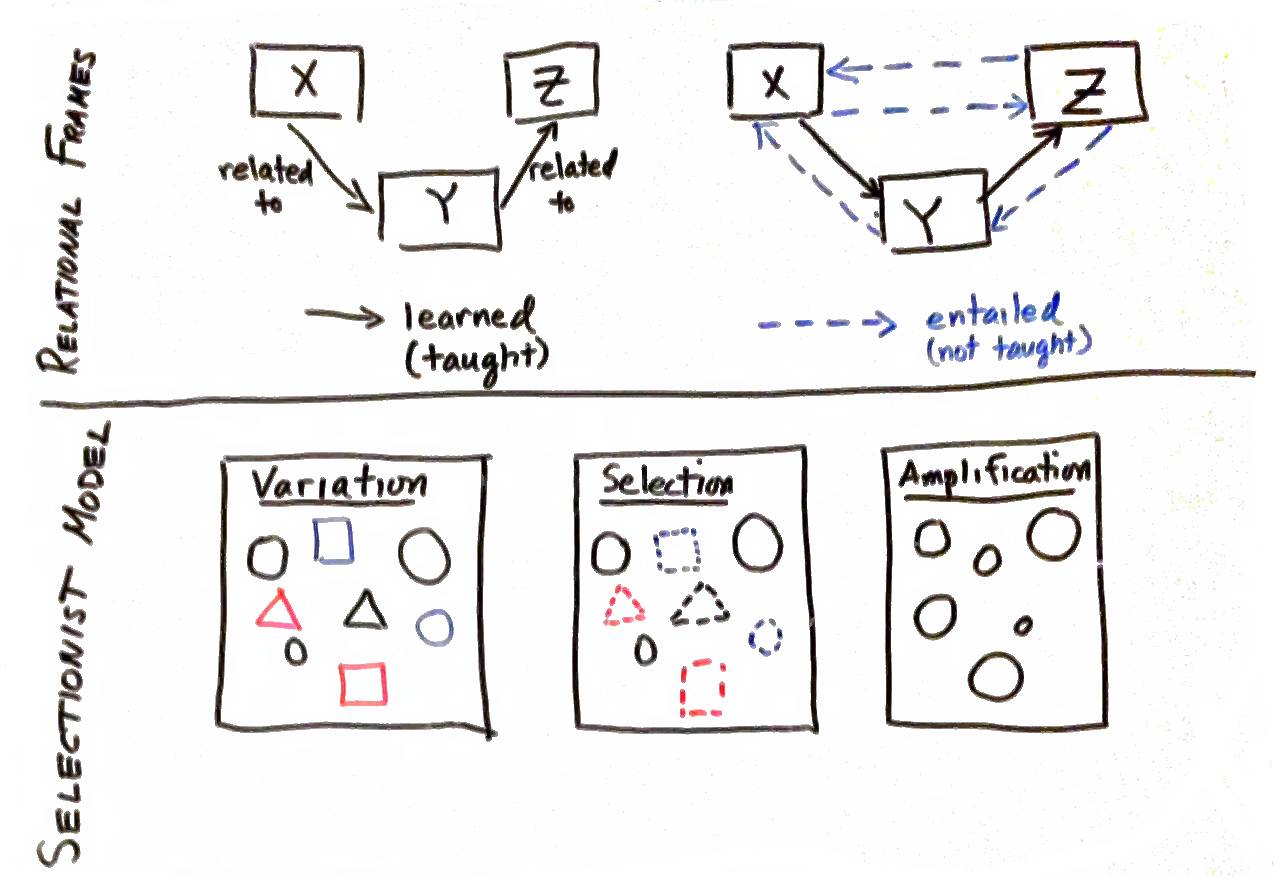 RELATIONAL FRAMES
X
Z
related
to
Y
related
to
learned
(taught)
X
Z
Y
entailed
(not taught)
SELECTIONIST MODEL
Variation
Selection
Amplification